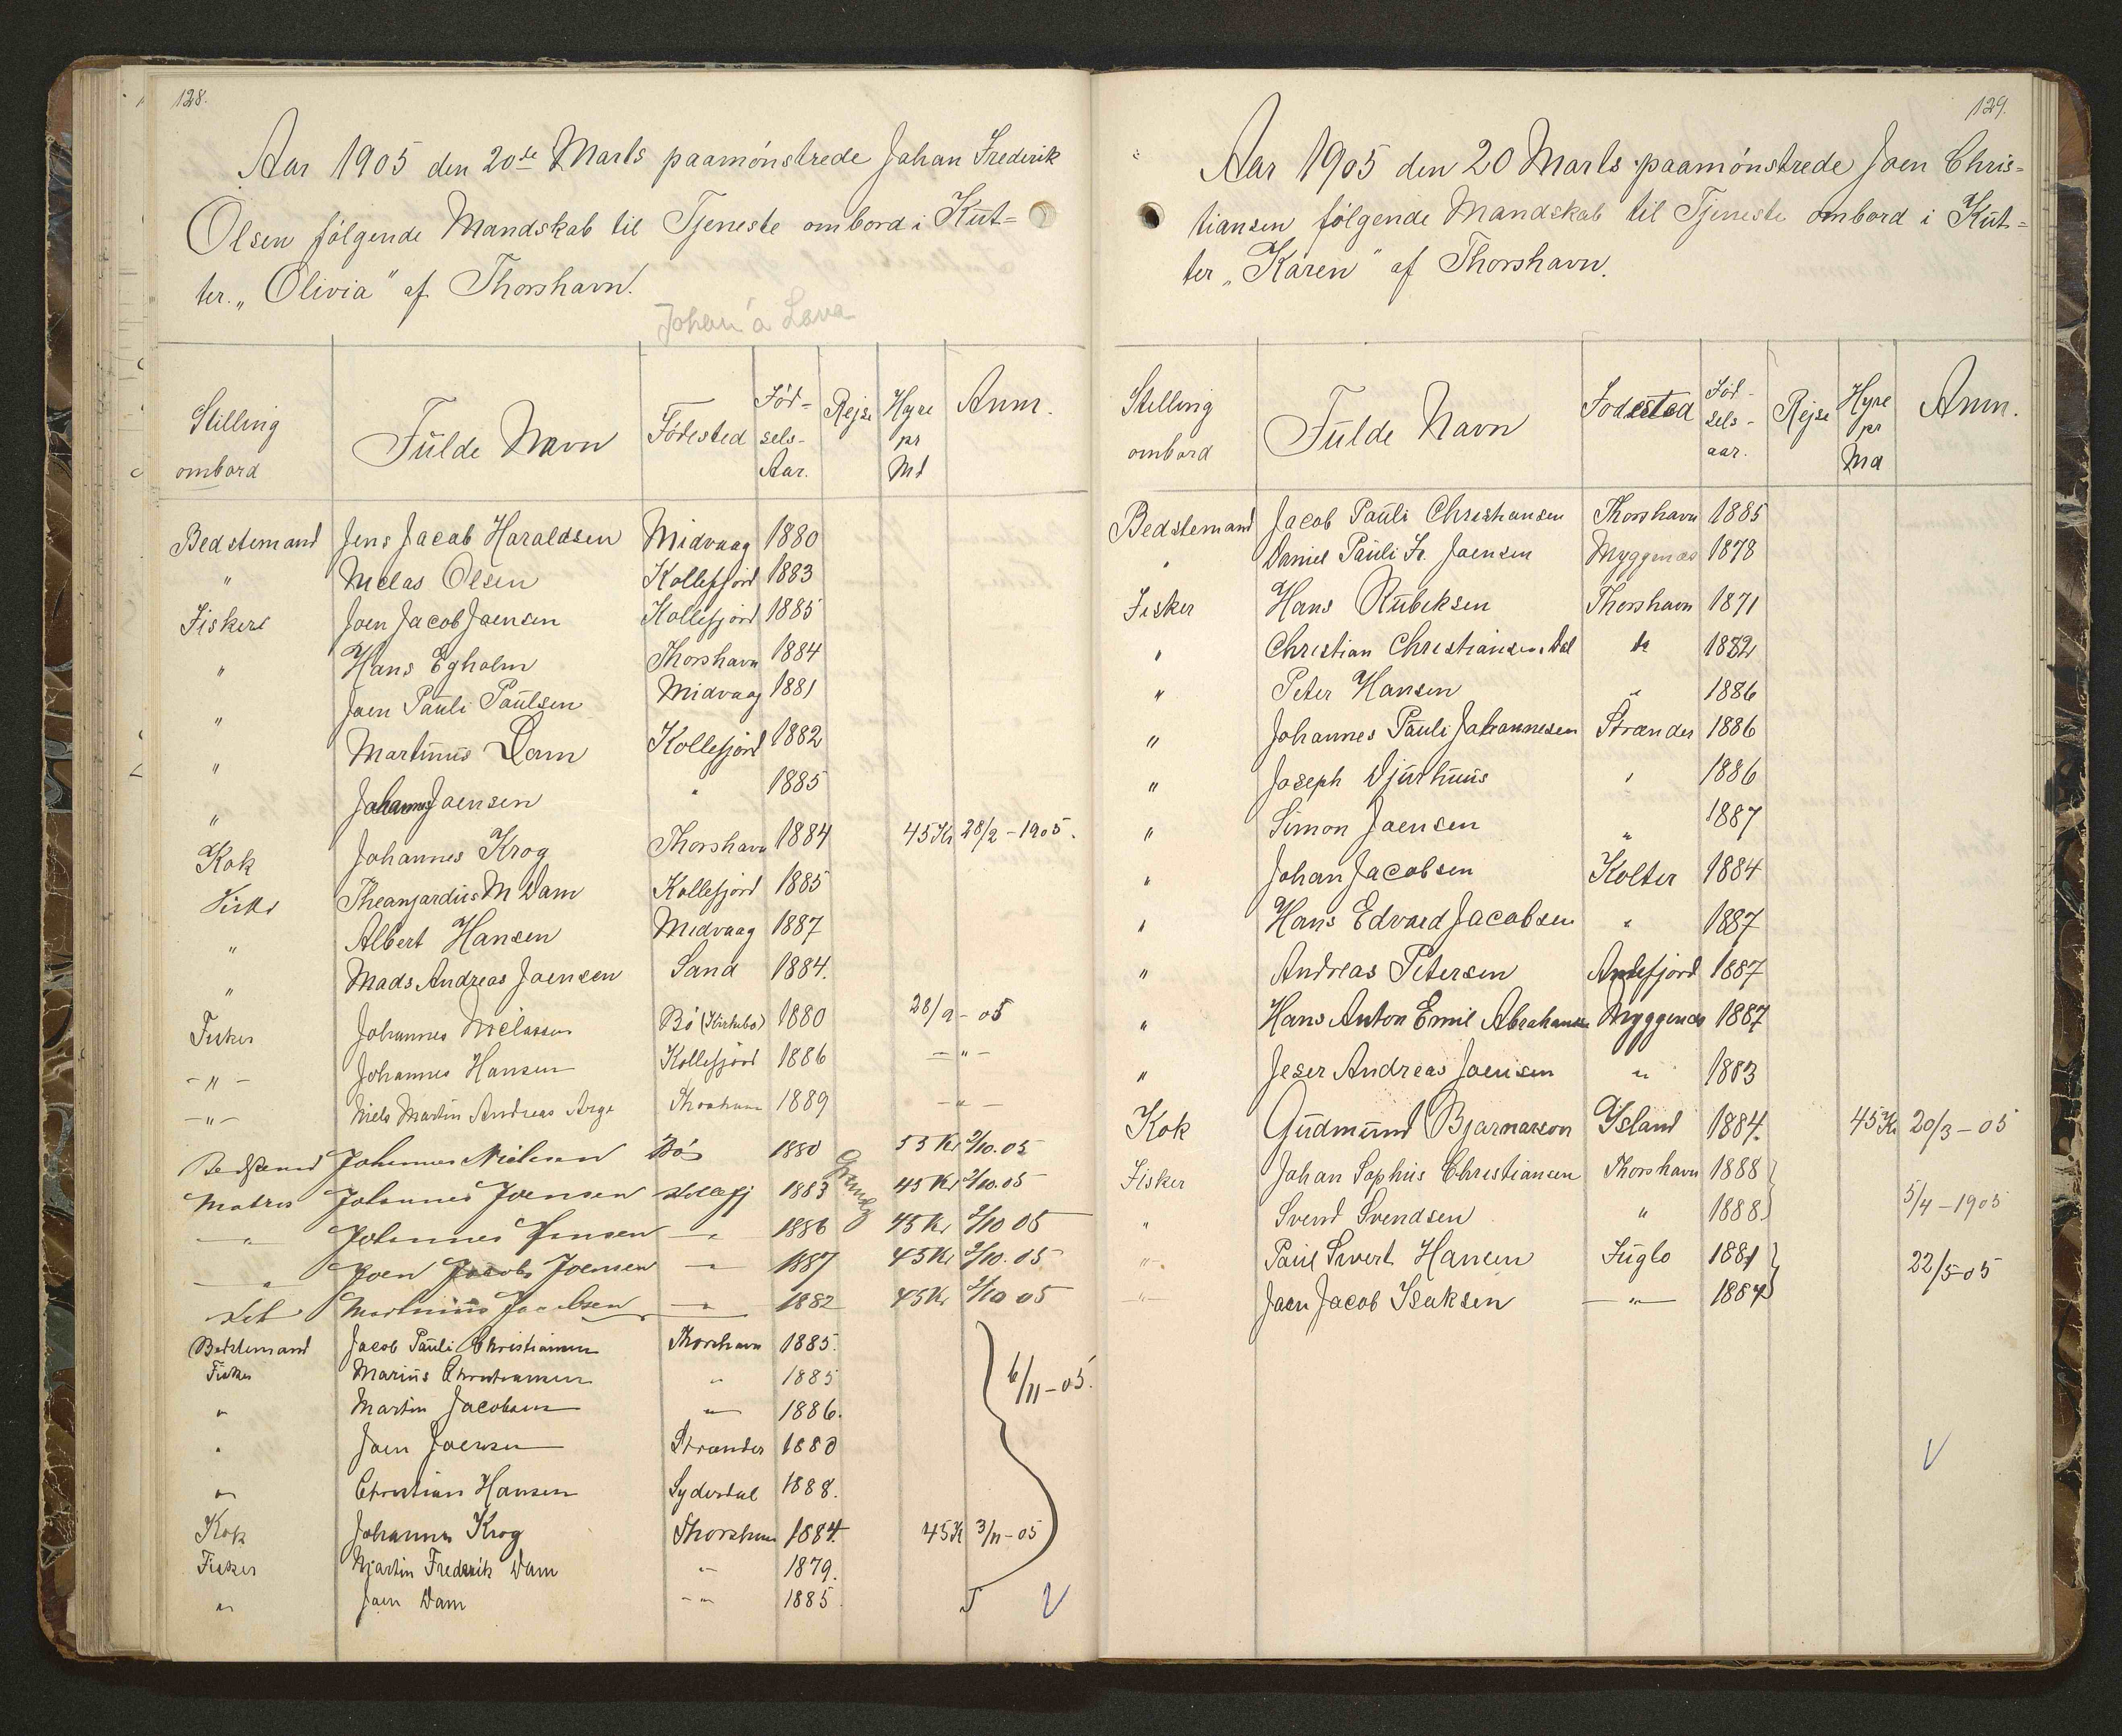 128.
Aar 1905 den 20de Marts paamönstrede Johan Frederik
Olsen følgende Mandskab til Tjeneste ombord i Kut=
ter. „Olivia“ af Thorshavn.
Johan á Lava
Stilling ombord Fulde Navn Födested Föd-sels-Aar. Rejse Hyre pr Md Anm.
Bedstemand Jens Jacob Haraldsen Midvaag 1880
" Niclas Olsen Kollefjord 1883
Fiskere Joen Jacob Joensen Kollefjord 1885
" Hans Egholm Thorshavn 1884
" Joen Pauli Paulsen Midvaag 1881
" Martinus Dam Kollefjord 1882
" Johannes Joensen " 1885
Kok Johannes Krog Thorshavn 1884 45 Kr 28/2-1905.
Fisker Theangardius M Dam Kollefjord 1885
" Albert Hansen Midvaag 1887
" Mads Andreas Joensen Sand 1884.
Fisker Johannes Niclassen Bö (Kirkebö) 1880 28/9-05
-"- Johannes Hansen Kollefjord 1886 -"-
-"- Niels Martin Andreas Arge Thorshavn 1889 -"-
Bedstemd Johannes Niclasen Bö 1880 55 Kr 2/10.05
Matros Johannes Joensen Kollefj 1883 45 Kr 2/10.05
" Johannes Hansen " 1886 45 Kr 2/10 05
" Joen Jacob Joensen " 1887 45 Kr 2/10.05
Martinus Jacobsen " 1882 45 Kr 2/10 05
Bedstemand Jacob Pauli Christiansen Thorshavn 1885.
Fisker Marius Christiansen " 1885
" Martin Jacobsen " 1886.
" Joen Joensen Strander 1880
" Christian Hansen Sydredal 1888.
6/11-05.
Kok Johannes Krog Thorshavn 1884. 45 Kr 3/11-05
Fisker Martin Frederik Dam " 1879.
" Joen Dam -"- 1885.
129.
Aar 1905 den 20 Marts paamönstrede Joen Chris=
tiansen følgende Mandskab til Tjeneste ombord i Kut=
ter „Karen“ af Thorshavn.
Stilling ombord Fulde Navn Fodested Föd-sels-aar. Rejse Hyre pr Md Anm.
Bedstemand Jacob Pauli Christiansen Thorshavn 1885
" Daniel Pauli Fr. Joensen Myggenæs 1878
Fisker Hans Rubeksen Thorshavn 1871
" Christian Christiansen Dal do 1882
" Peter Hansen " 1886
" Johannes Pauli Johannesen Strander 1886
" Joseph Djurhuus " 1886
" Simon Joensen " 1887
" Johan Jacobsen Kolter 1884
" Hans Edvard Jacobsen " 1887
" Andreas Petersen Andefjord 1887
" Hans Anton Emil Abrahamsen Myggenæs 1887
" Jeser Andreas Joensen " 1883
Kok Gudmund Bjarnarson Ysland 1884. 45 Kr 20/3-05
Fisker Johan Sophus Christiansen Thorshavn 1888
" Svend Svendsen " 1888 5/4-1905
" Paul Sivert Hansen Fuglo 1881
" Joen Jacob Isaksen " 1884 22/5-05